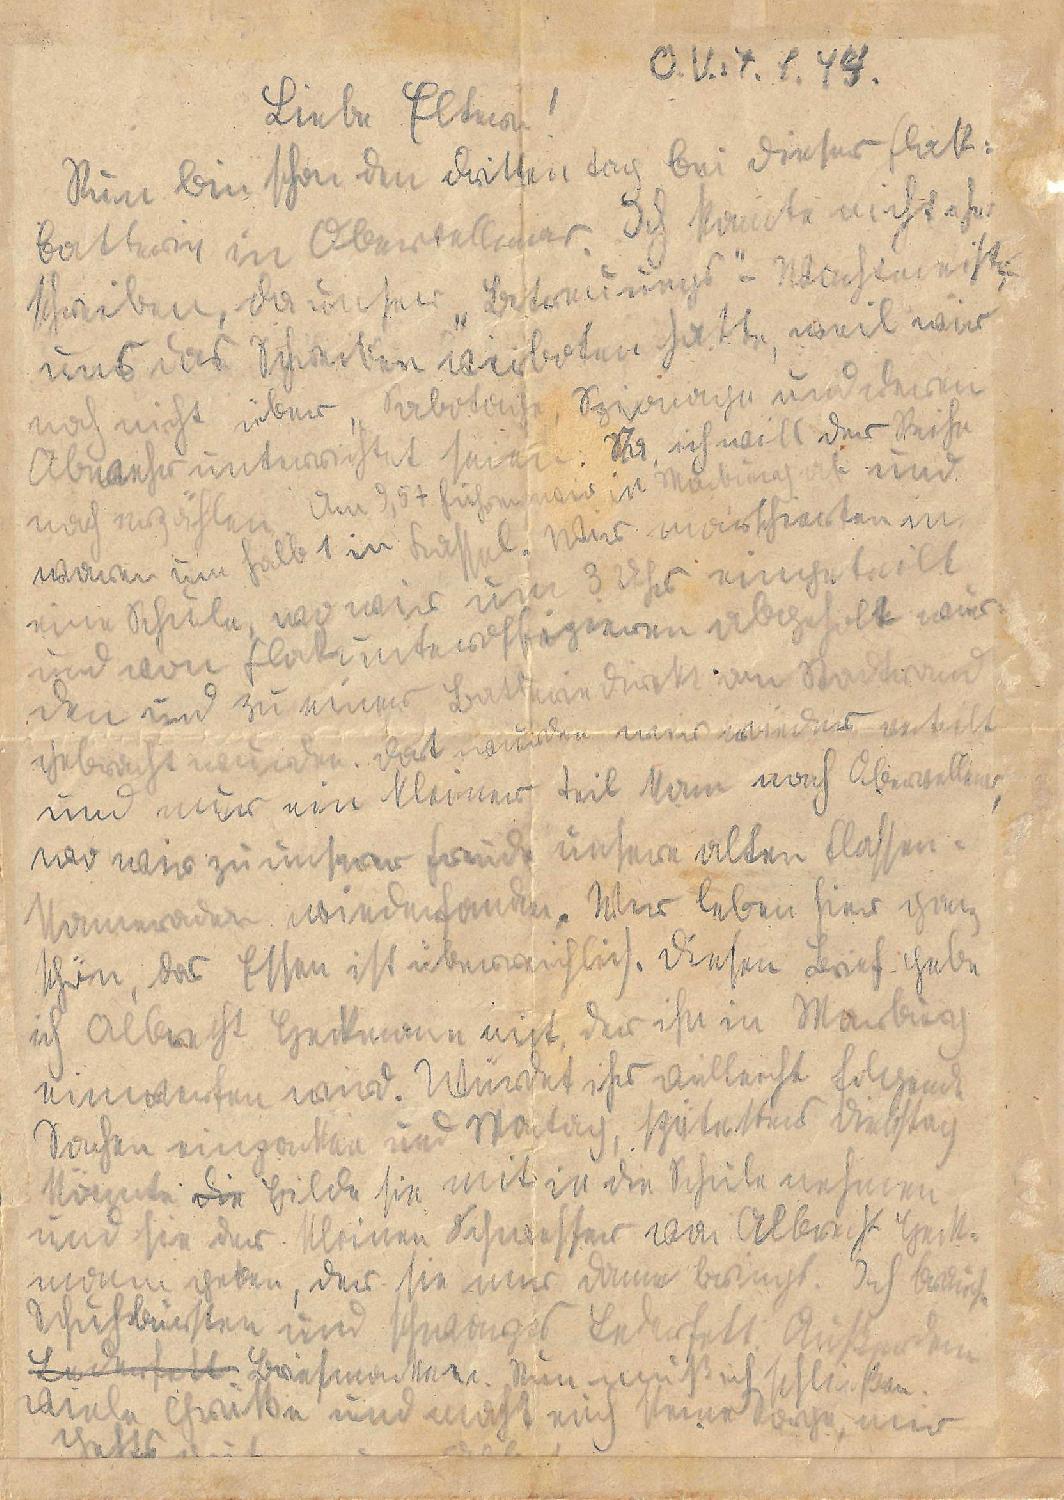 O.V. 7. 1. 44.
Liebe Eltern!
Nun bin schon den dritten tag bei dieser Flak-
batterie in Obervellmar. Ich konnte nicht eher
schreiben, da unser „Betreuungs"-Wachtmeister
uns das Schreiben verboten hatte, weil wir
noch nicht über „Sabotage, Spionage und deren
Abwehr unterrichtet seien. Na, ich will der Reihe
nach erzählen. Um 9,57 fuhren wir in Marburg ab und
waren um halb 1 in Kassel. Wir marschierten in
eine Schule, wo wir um 3 Uhr eingeteilt
und von Flakunteroffizieren abgeholt wur-
den und zu einer Batterie direkt am Stadtrand
gebracht wurden. Dort wurden wir wieder verteilt
und nur ein kleiner teil kam nach Obervellmar,
wo wir zu unserer Freude unsere alten Classen-
kameraden wiederfanden. Wir leben hier ganz
schön, das Essen ist überreichlich. Diesen Brief gebe
ich Albrecht Heckmann mit, der ihn in Marburg
einwerfen wird. Würdet ihr vielleicht folgende
Sachen einpacken und Montag, spätestens Dienstag
könnte die Hilde sie mit in die Schule nehmen
und sie der kleinen Schwester von Albrecht Heck-
mann geben, der sie mir dann bringt. Ich brauche
Schuhbürsten und schwarzes Lederfett. Außerdem
Lederfett Briefmarken. Nun muß ich schließen.
Viele Grüße und macht euch keine Sorge, mir
gehts gut